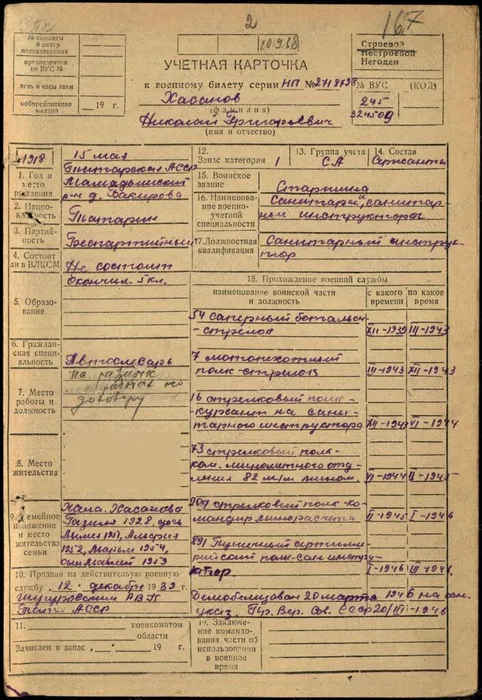 2
167
№ команды
и литер
подразделения
предназначен
по ВУС №
день и часы явки
мобпредписание
выдано
19 г.
10.9.68
УЧЕТНАЯ КАРТОЧКА
к военному билету серии НП № 2718798
Хасанов
(фамилия)
Николай Григорьевич
(имя и отчество)
Строевой
Нестроевой
Негоден
№ ВУС (КОД)
245
324509
1918 15 мая
Татарская АССР
Мамадышский
р-н д.
1. Год и место рождения
2. Национальность
Татарин
3. Партийность
Беспартийный
4. Состоит ли в ВЛКСМ
Не состоит
окончил 5 кл.
5. Образование
6. Гражданская специальность
Автослесарь
7. Место работы и должность
договору
8. Место жительства
9. Семейное положение и место жительства семьи
Жена Хасанова
1928, дочь
1951,
1952, Марьям 1954,
сын 1959
10. Призван на действительную военную
службу 12 декабря 1939 г.
РВК
Тат. АССР
11. военкоматом
области
Зачислен в запас 19 г.
12.
Запас категории 1
13. Группа учета
СА
14. Состав
Сержанты
15. Воинское звание
Старшина
16. Наименование военно-учетной специальности
Санитары и санитарные инструкторы
17. Должностная квалификация
Санитарный инструктор
18. Прохождение военной службы
наименование воинской части и должность
с какого времени
по какое время
54 саперный батальон-
стрелок XII-1939 III-1943
7 мотопехотный
полк-стрелок III-1943 XII-1943
16 стрелковый полк-
курсант на санитарного инструктора XII-1943 VI-1944
73 стрелковый полк-
ком. минометного отделения 82 м/м мином. VI-1944 II-1945
207 стрелковый полк-ко-
мандир минрасчета II-1945 I-1946
891 пушечный артиллерийский полк-сан инструктор I-1946 III-1946
Демобилизован 20 марта 1946 на осн.
указ. Пр. Вер. Сов. СССР 20/III-1946
19. Заключение командования части об использовании в военное время